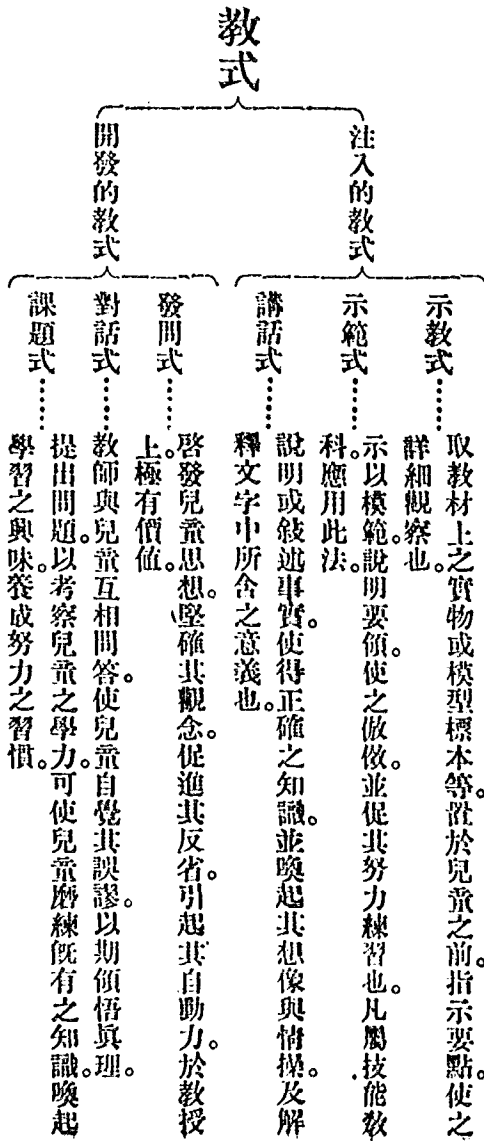 教式
注入的教式
示教式……
取教材上之實物或模型標本等。置於兒童之前。指示要點。使之
詳細觀察也。
示範式……
示以模範。說明要領。使之倣傚。並促其努力練習也。凡屬技能教
科。應用此法。
講話式……
說明或敍述事實。使得正確之知識。並喚起其想像與情操。及解
釋文字中所含之意義也。
開發的教式
發問式……
啓發兒童思想。堅確其觀念。促進其反省。引起其自動力。於教授
上極有價値。
對話式……
教師與兒童互相問答。使兒童自覺其誤謬。以期領悟眞理。
課題式……
提出問題。以考察兒童之學力。可使兒童磨練旣有之知識。喚起
學習之興味。養成努力之習慣。